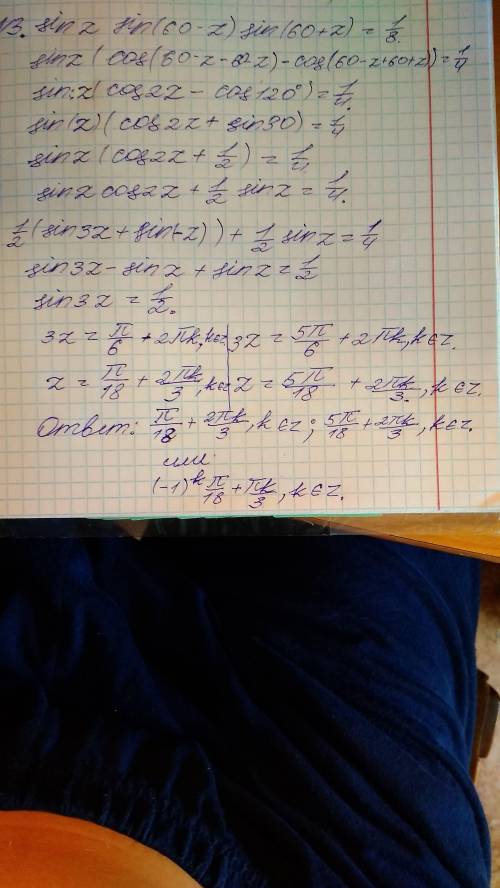 N3. sin x sin(60-x) sin(60+x) = 1/8.
sin x (cos(60-x-60-x) - cos(60-x+60+x)) = 1/4
sin x (cos 2x - cos 120°) = 1/4.
sin(x)(cos 2x + sin 30) = 1/4
sin x (cos 2x + 1/2) = 1/4
sin x cos 2x + 1/2 sin x = 1/4.
1/2 (sin 3x + sin(-x)) + 1/2 sin x = 1/4
sin 3x - sin x + sin x = 1/2
sin 3x = 1/2.
3x = π/6 + 2πk, k∈Z 3x = 5π/6 + 2πk, k∈Z.
x = π/18 + 2πk/3, k∈Z x = 5π/18 + 2πk/3, k∈Z.
Ответ: π/18 + 2πk/3, k∈Z; 5π/18 + 2πk/3, k∈Z.
или
(-1)^k π/18 + πk/3, k∈Z.